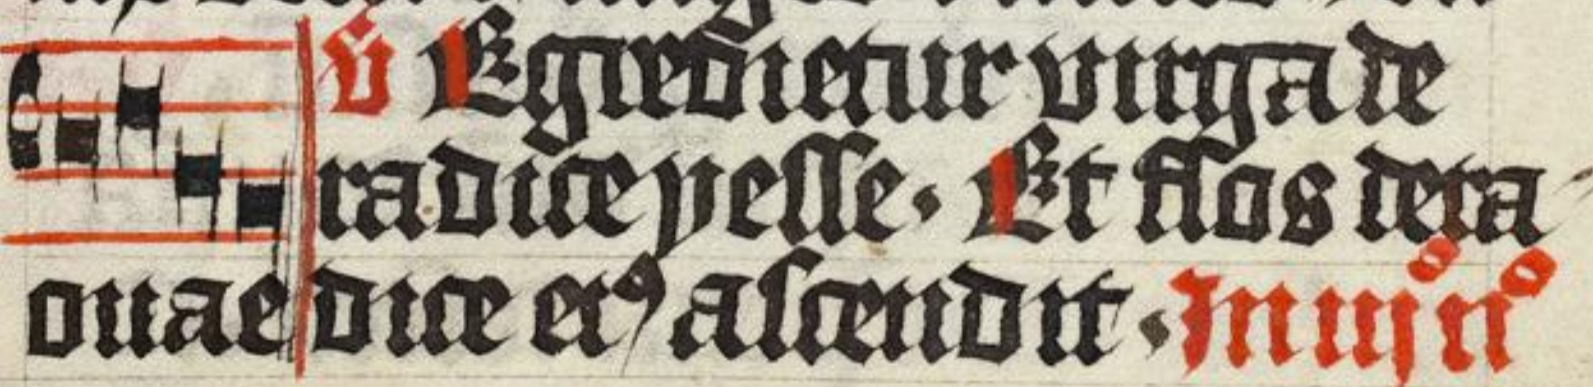 v̄ Egredietur virga de
radice yesse · Et flos de ra
ouae dice eiꝰ ascendit · In iij° n°